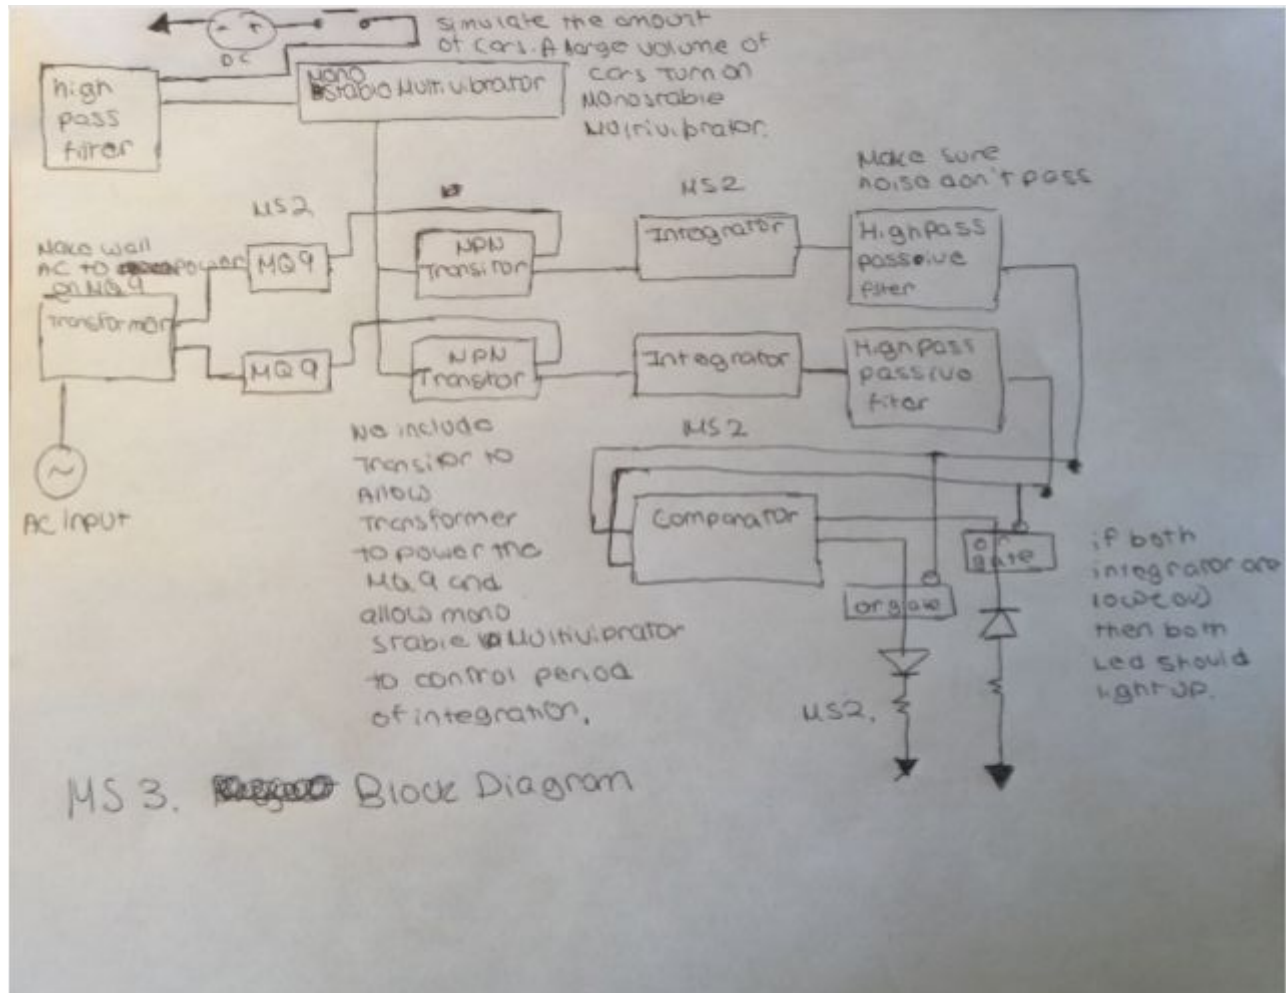 simulate the amount
of cars. A large volume of
cars turn on
Monostable
Multivibrator.
- +
DC
high
pass
filter
Mono
stable Multivibrator
Make sure
noise don't pass
MS2
MS2
Make wall
AC to power
on MQ9
MQ9
NPN
Transitor
Integrator
High Pass
passive
filter
Transformer
MQ9
NPN
Transtor
Integrator
High Pass
passive
filter
AC Input
No include
Transitor to
Allow
Transformer
to power the
MQ9 and
allow mono
stable Multivibrator
to control period
of integration.
MS2
Comparator
or
gate
or gate
if both
integrator are
low(0V)
then both
Led should
light up.
MS2.
MS3. Block Diagram